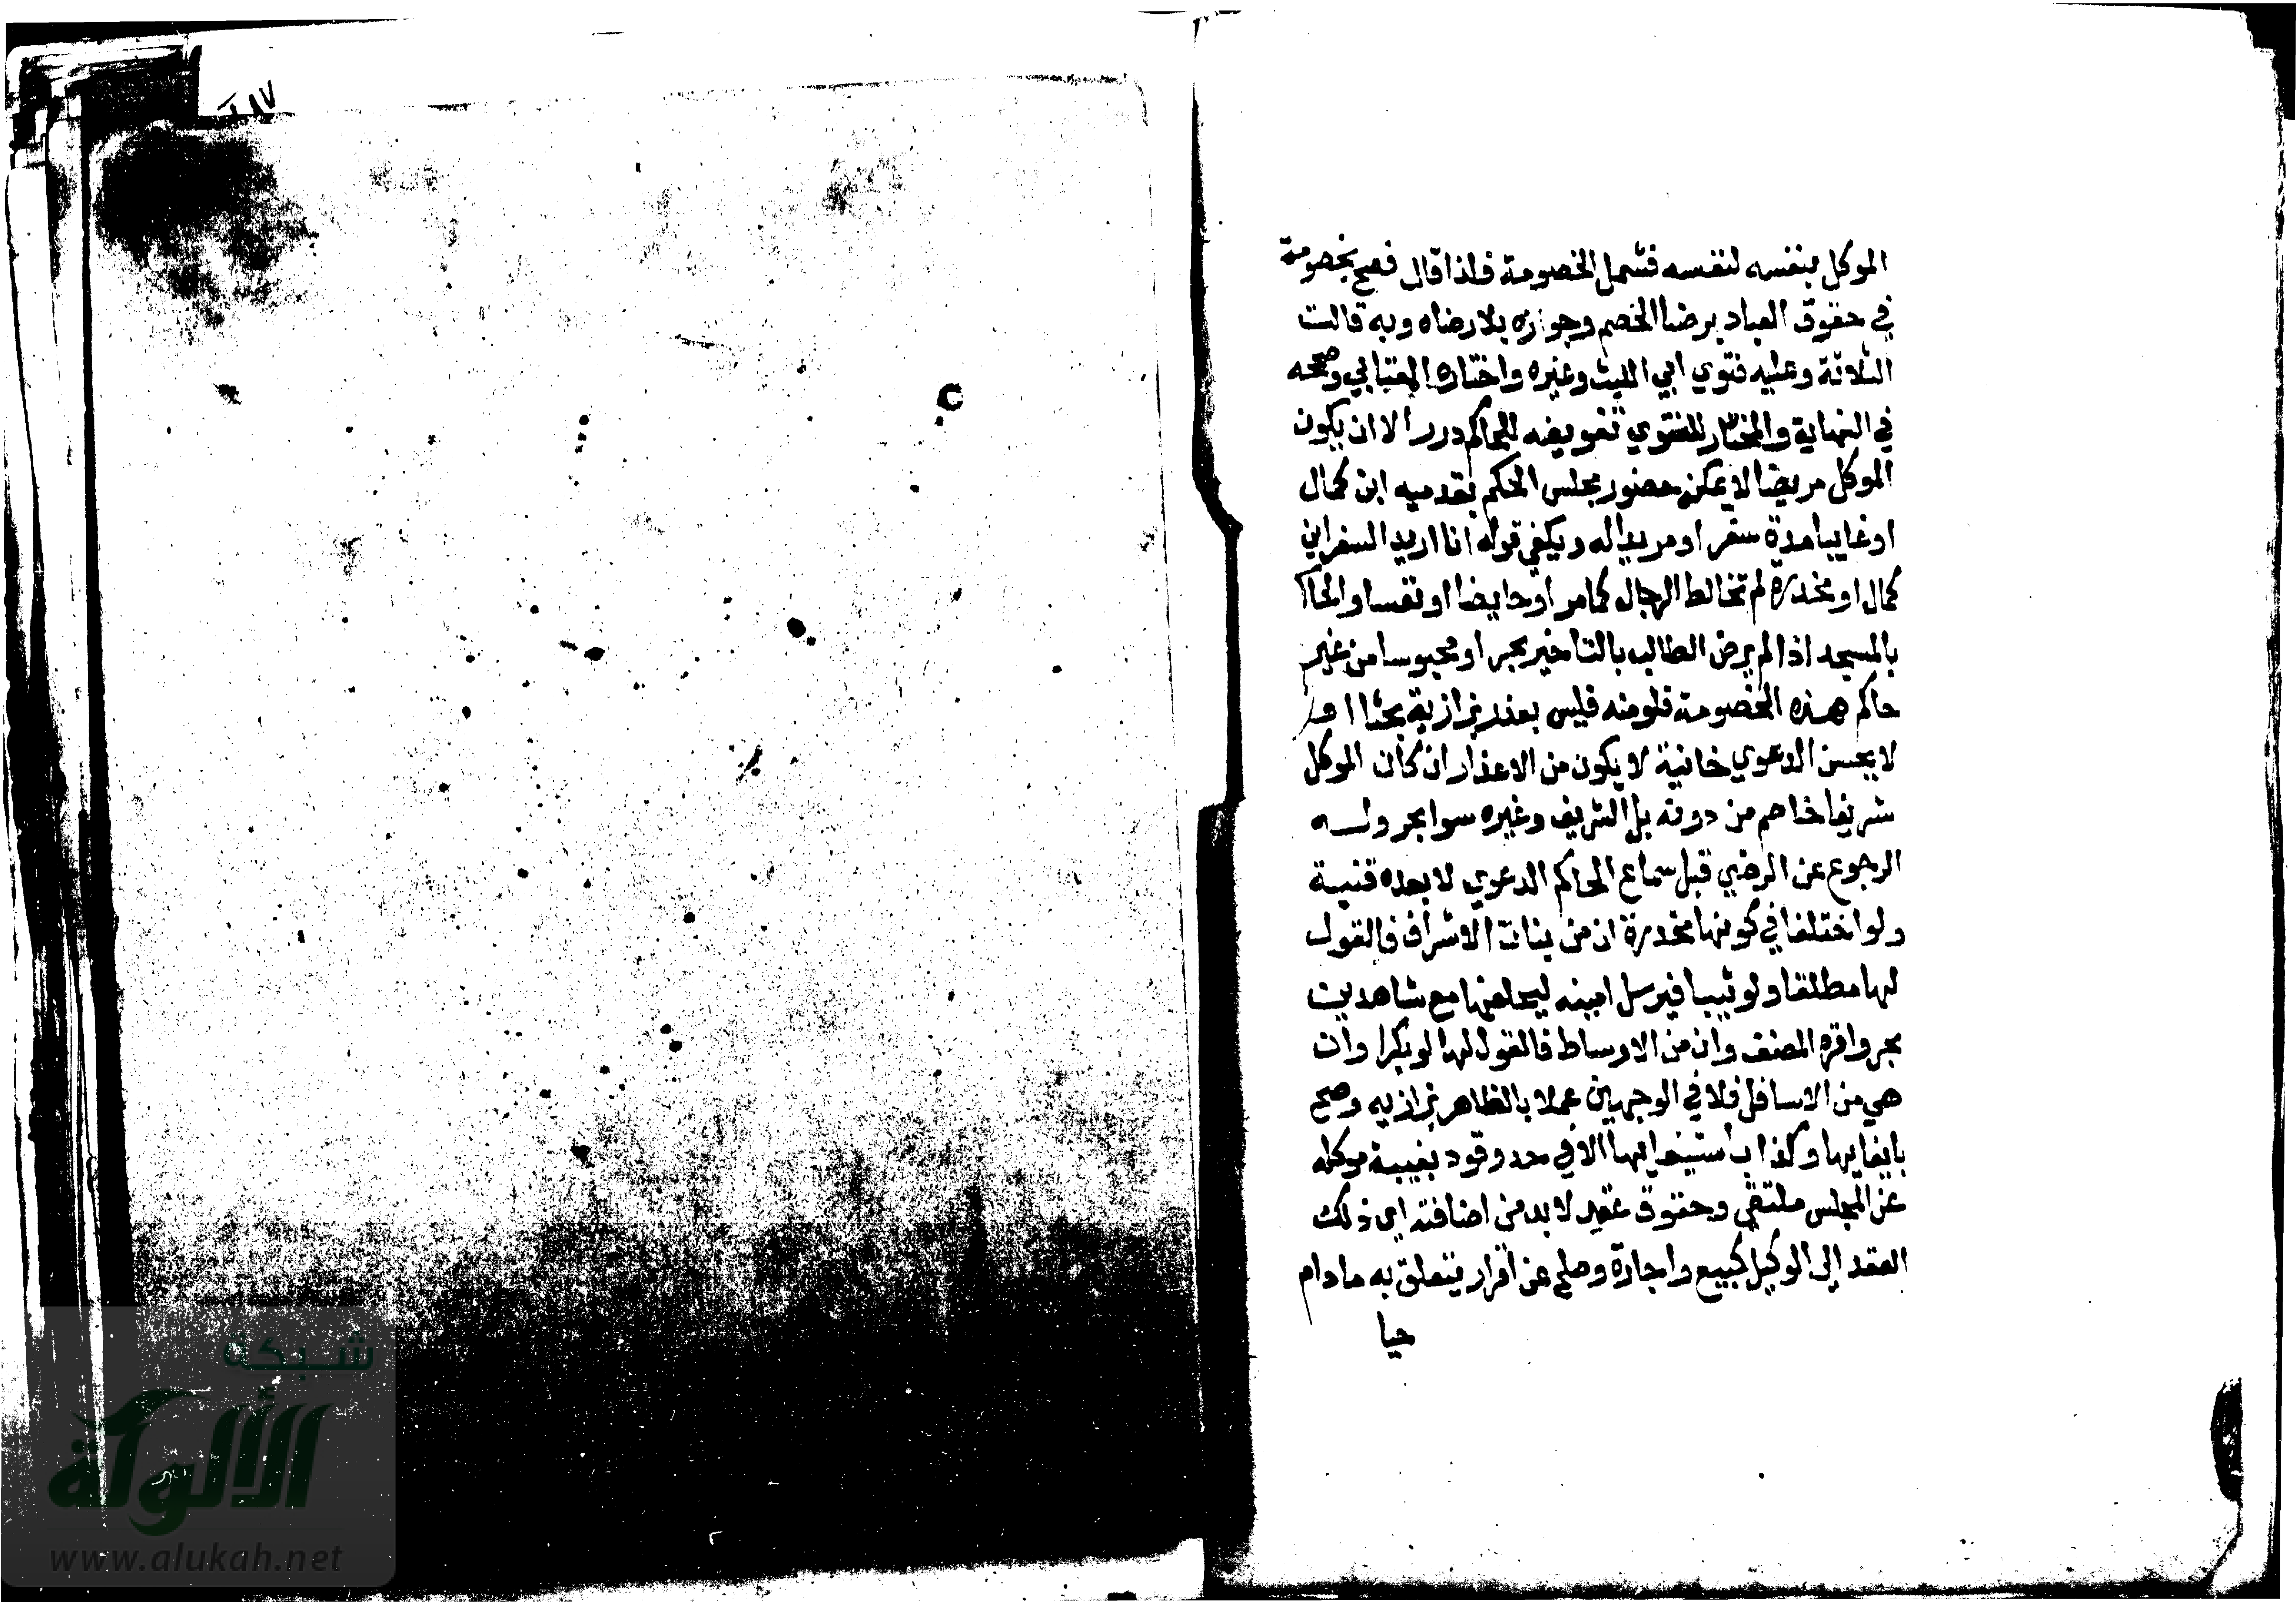 الموكل بنفسه لنفسه فشمل الخصومة فلذا قال فصح بخصومة
في حقوق العباد برضا الخصم وجوازه بلا رضاه وبه قالت
الثلاثة وعليه فتوي ابي الليث وغيره واختاره العتابي وصححه
في النهاية والمختار للفتوي تفويضه للحاكم درر الا ان يكون
الموكل مريضا لا يمكنه حضور مجلس الحكم بقدميه ابن كمال
او غايبا مدة سفر او مريدا له ويكفي قوله انا اريد السفر ابن
كمال او مخدرة لم تخالط الرجال كما مر او حايضا او نفسا والحاكم
بالمسجد اذا لم يرض الطالب بالتاخير بحر او محبوسا من غير
حاكم هذه الخصومة فلو منه فليس بعذر بزازية بحثا او
لا يحسن الدعوي خانية لا يكون من الاعذار ان كان الموكل
شريفا خاصم من دونه بل الشريف وغيره سوا بحر وله
الرجوع عن الرضي قبل سماع الحاكم الدعوي لا بعده قنية
ولو اختلفا في كونها مخدرة ان من بنات الاشراف فالقول
لها مطلقا ولو ثيبا فيرسل امينه ليحلفها مع شاهدين
بحر واقره المصنف وان من الاوساط فالقول لها لو بكرا وان
هي من الاسافل فلا في الوجهين عملا بالظاهر بزازيه وصح
بايفايها وكذا باستيفايها الا في حد وقود بغيبة موكله
عن المجلس ملتقي وحقوق عقد لا بد من اضافته اي ذلك
العقد إلى الوكيل كبيع واجارة وصلح عن اقرار يتعلق به ما دام
حيا
شبكة
الألوكة
www.alukah.net